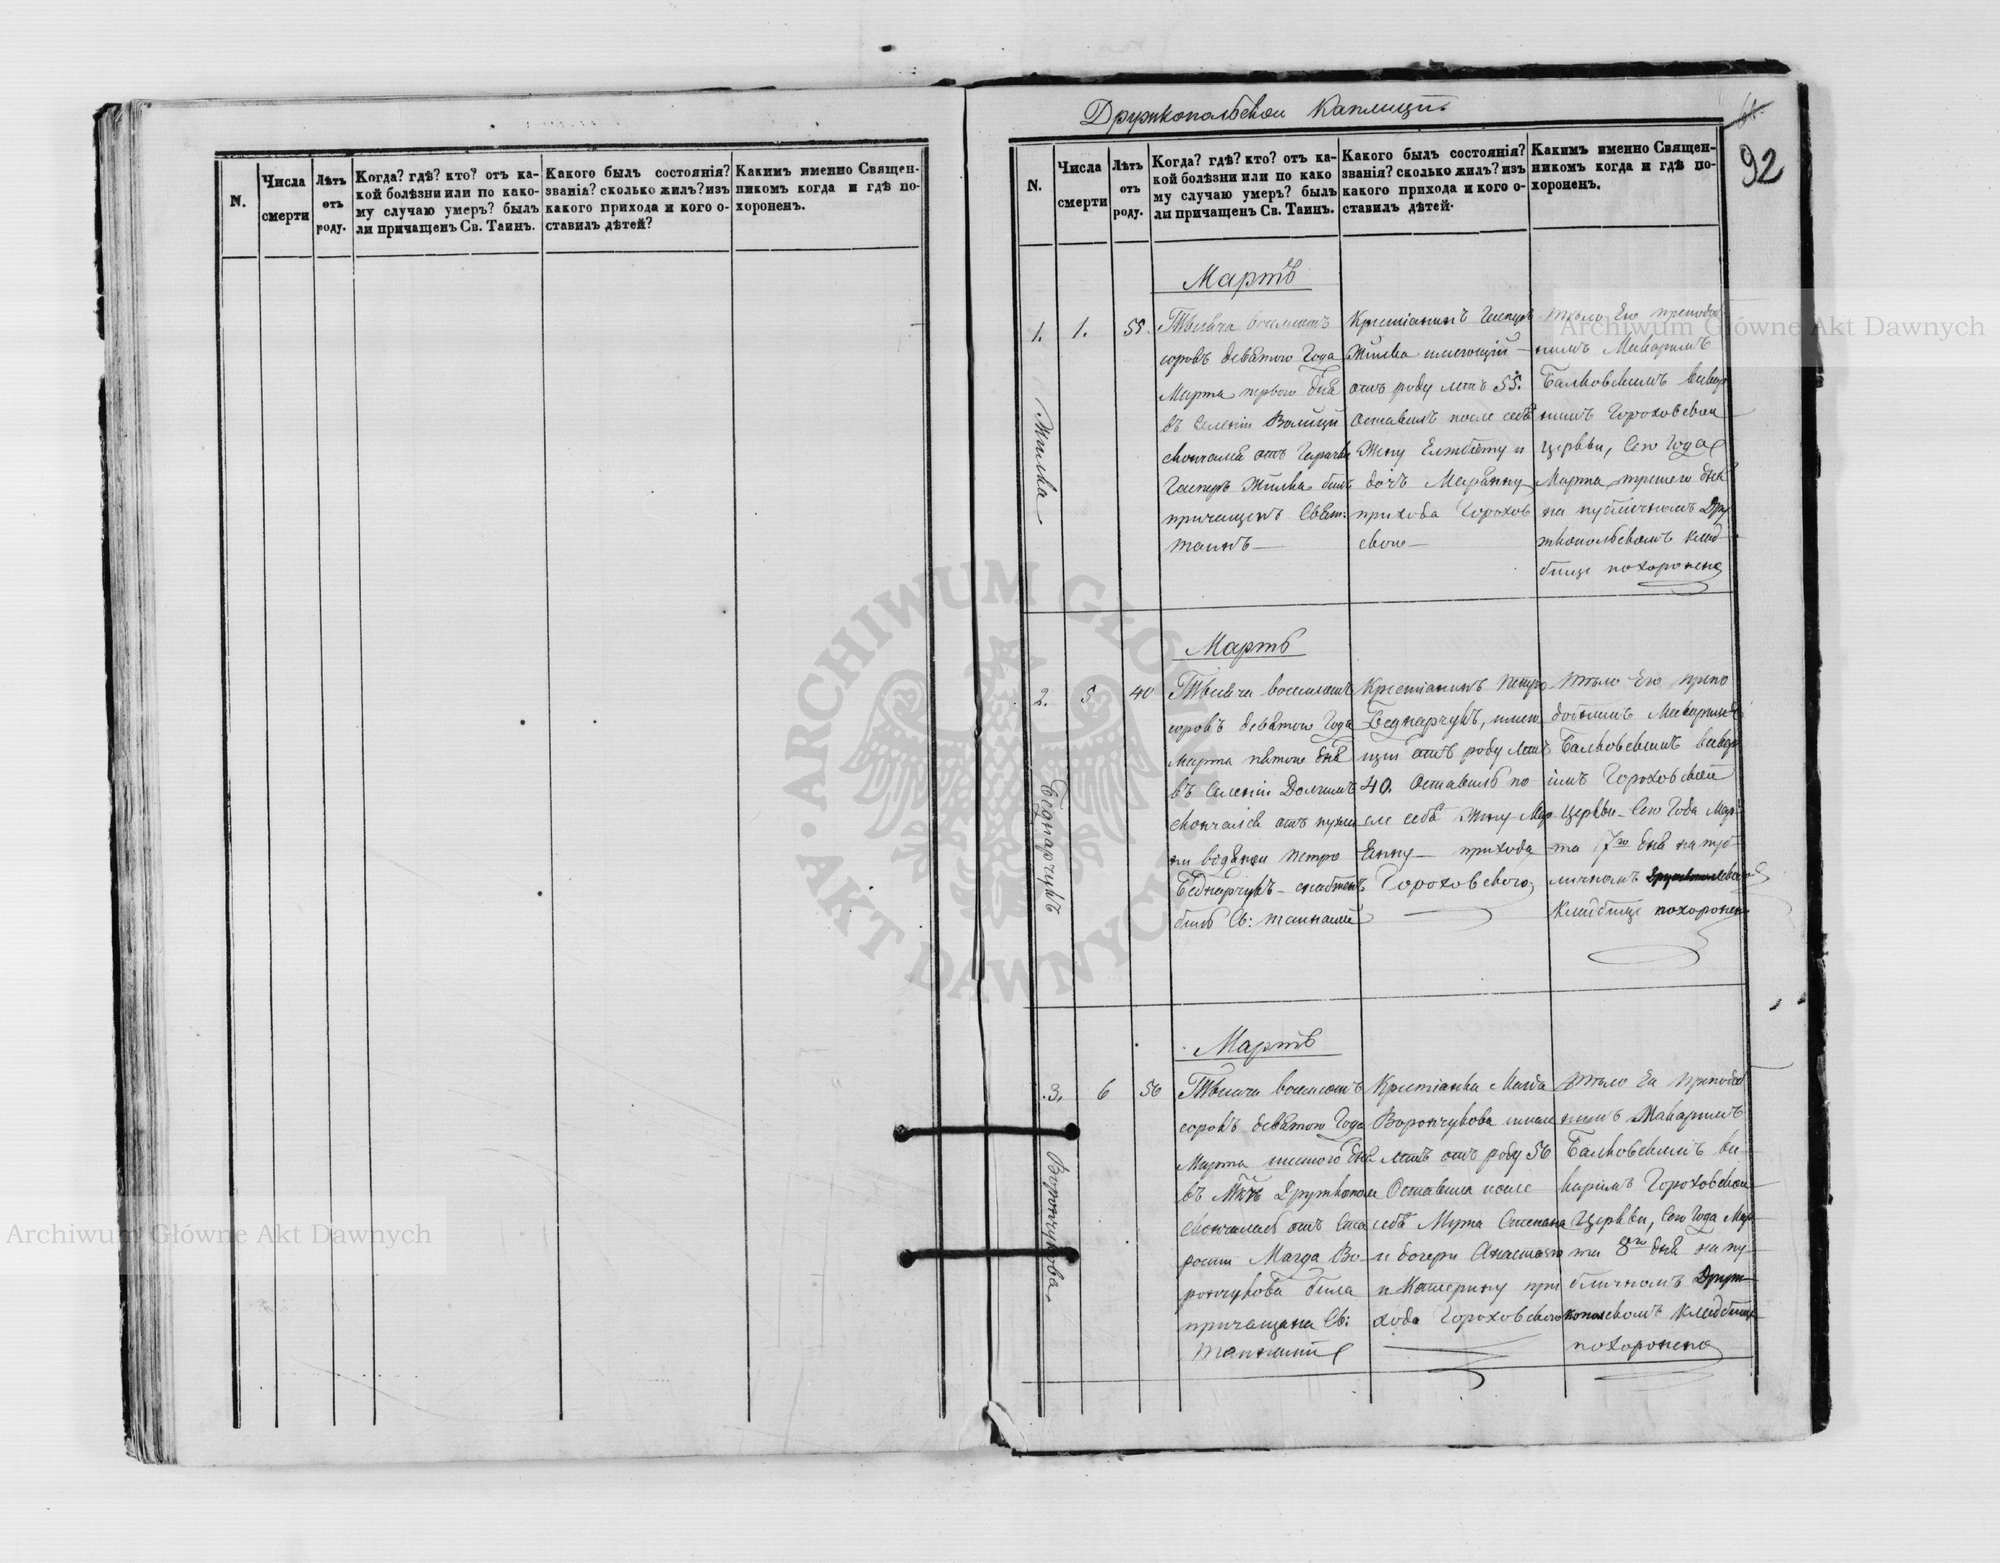 N.
Числа
смерти
Лѣтъ
отъ
роду.
Когда? гдѣ? кто? отъ ка-
кой болѣзни или по како-
му случаю умеръ? былъ
ли причащенъ Св. Таинъ.
Какого былъ состоянія?
званія? сколько жилъ? изъ
какого прихода и кого о-
ставилъ дѣтей?
Какимъ именно Священ-
никомъ когда и гдѣ по-
хороненъ.
Дружкопольской Каплицы
92
N.
Числа
смерти
Лѣтъ
отъ
роду.
Когда? гдѣ? кто? отъ ка-
кой болѣзни или по како
му случаю умеръ? былъ
ли причащенъ Св. Таинъ.
Какого былъ состоянія?
званія? сколько жилъ? изъ
какого прихода и кого о-
ставилъ дѣтей.
Какимъ именно Священ-
никомъ когда и гдѣ по-
хороненъ.
1.
Жилка
1.
55
Мартъ
Тысяча восемсотъ
сорокъ девятого Года
Марта первого дня
въ Селеніи Волици
скончался отъ Горячки
Гасперъ Жилка билъ
причащенъ Свят:
таинъ
Крестіанинъ Гасперъ
Жилка имеющій
отъ роду летъ 55.
Оставилъ после себѣ
Жену Елжбѣту и
дочъ Маріянну
прихода Горохов
ской
тѣло Его преподоб
нимъ Макаримъ
Балковскимъ викар
нимъ Гороховской
Церкви, Сего Года
Марта третего дня
на публичномъ Дру
жкопольскомъ клад
бище похоронено
2.
Беднарчукъ
5
40
Мартъ
Тысяча восемсотъ
сорокъ девятого Года
Марта пятого дня
въ Селеніи Долгимъ
скончался отъ пухли
ни водянки Петро
Беднарчукъ снабженъ
билъ Св: таинами
Крестіанинъ Петро
Беднарчукъ, имею
щи отъ роду летъ
40. Оставилъ по-
сле себѣ Жену Мар
Енну прихода
Гороховского
тѣло Его препо
добнимъ Макаримъ
Балковскимъ викар
імъ Гороховской
Церкви Сего Года Мар-
та 7го дня на пуб
личномъ
Кладбище похоронено
3.
Ворончукова
6
56
Мартъ
Тысяча восемсотъ
сорокъ девятого Года
Марта шестого дня
въ Мѣст. Дружкополи
скончалась отъ Ста
рости Магда Во-
рончукова била
причащена Св:
таинами
Крестіанка Магда
Ворончукова имею
летъ отъ роду 56
Оставила после
себѣ Мужа Степана
и дочери Анастазію
и Катерину при
хода Гороховского
тѣло Ея преподоб
нимъ Макаримъ
Балковскимъ ви-
каримъ Гороховской
Церкви, Сего Года Мар
та 8го дня на пу-
бличномъ Друж
копольскомъ Кладбище
похоронено
Archiwum Główne Akt Dawnych
Archiwum Główne Akt Dawnych
ARCHIWUM GŁÓWNE AKT DAWNYCH